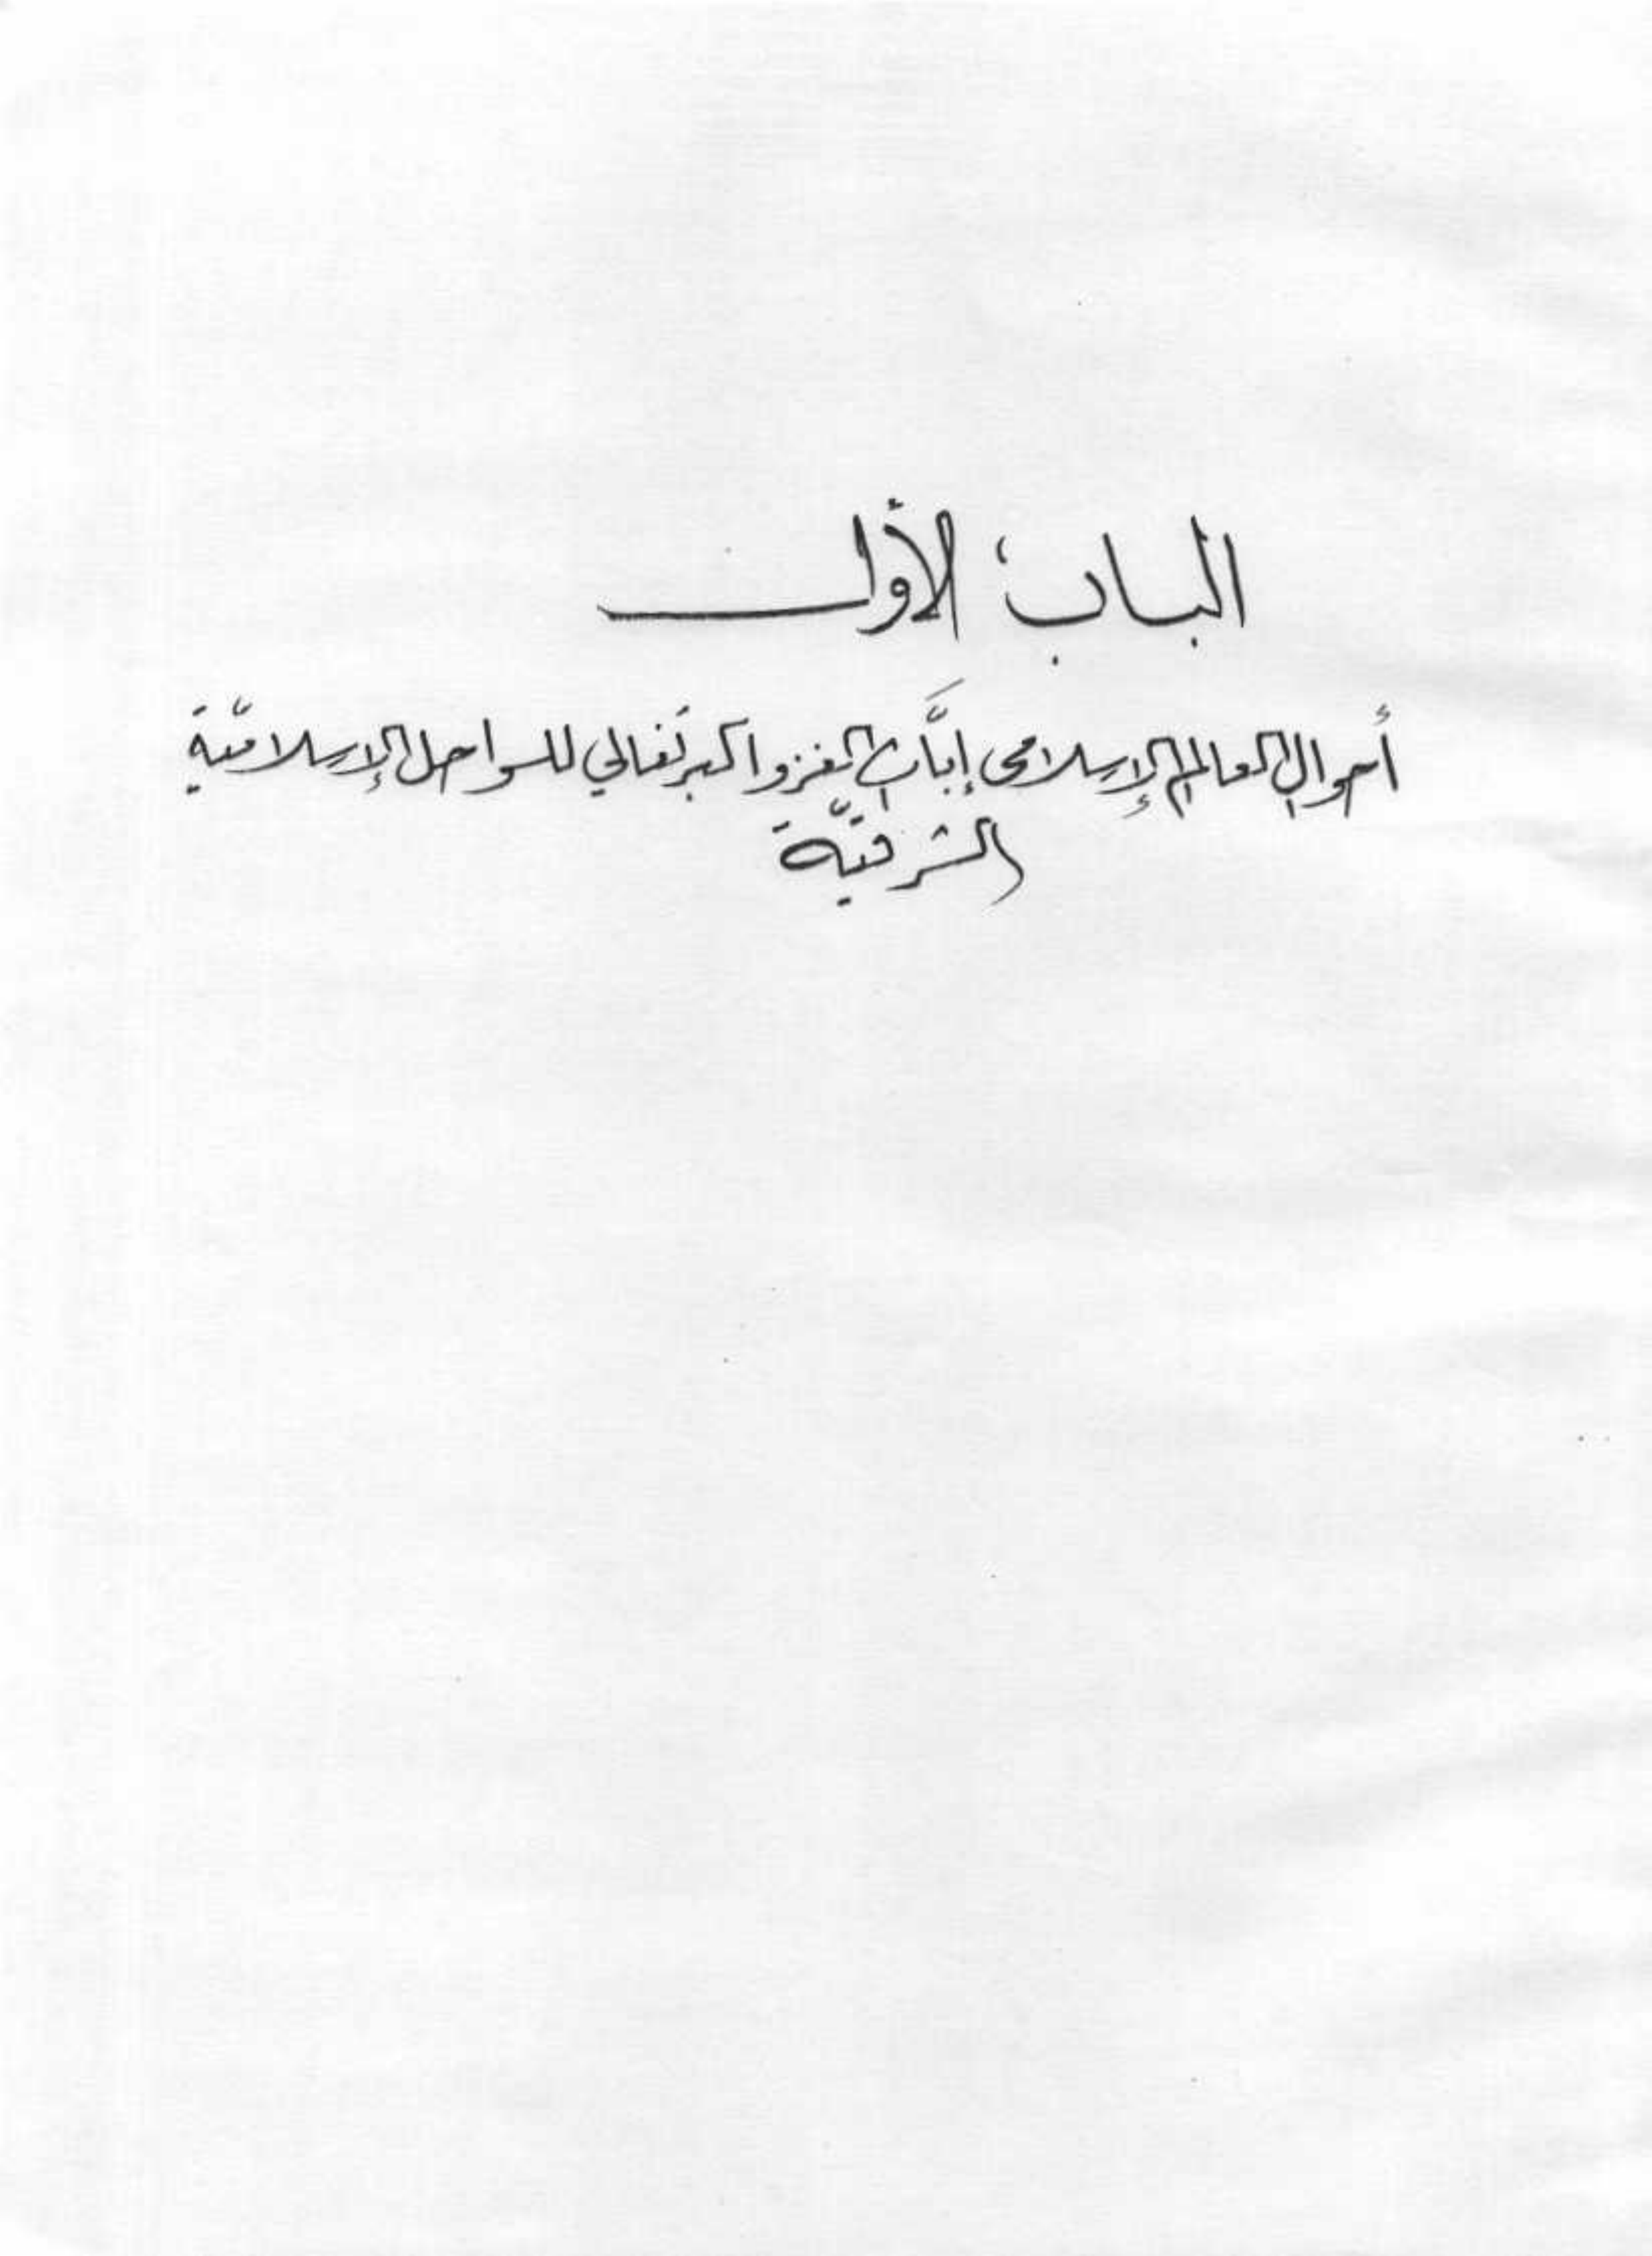 الباب الأول
أحوال العالم الإسلامى إبَّان الغزو البرتغالي للسواحل الإسلاميّة
الشرقيّة